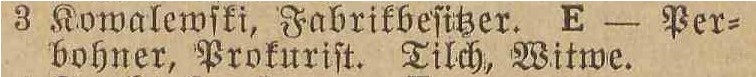 3 Kowalewski, Fabrikbesitzer. E — Per-
bohner, Prokurist. Tilch, Witwe.